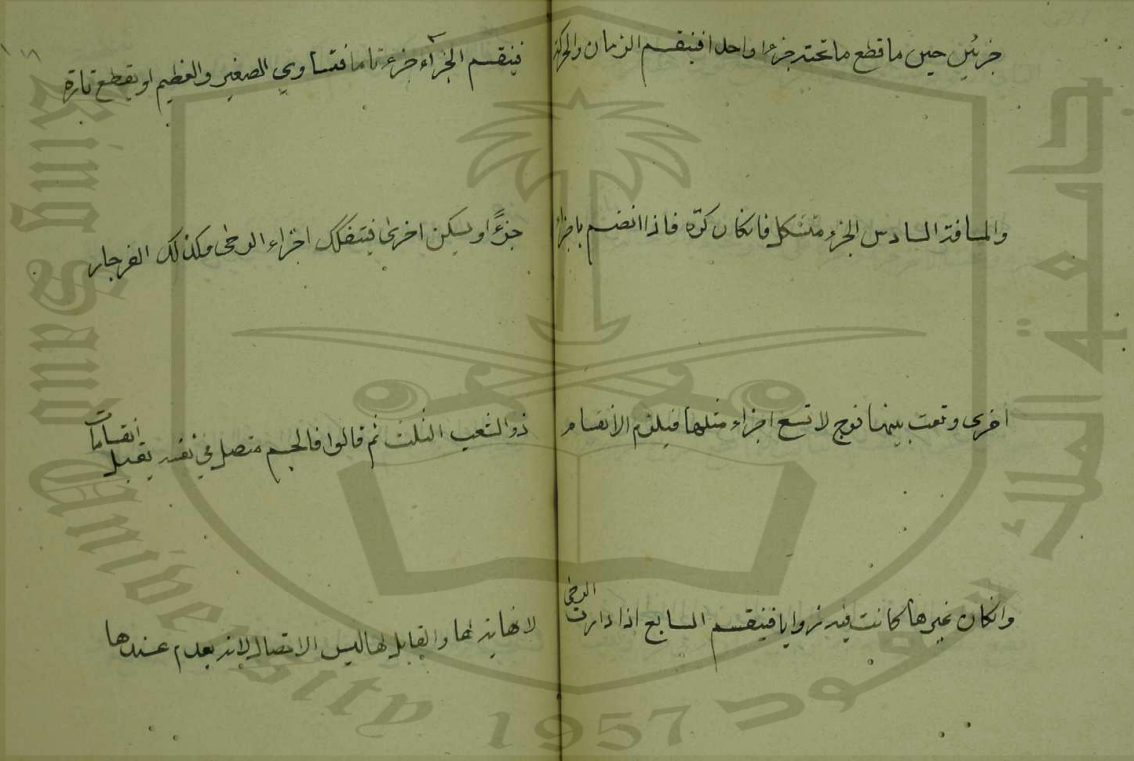 جزئين حين ما قطع ما تحته جزءا واحدا فينقسم الزمان والحركة
والمسافة السادس الجزء متشكل فانكان كرة فاذا انضم باجزاء
اخرى وقعت بينهما فرج لا تسع اجزاء مثلها فيلزم الأنقسام
وانكان غيرها كانت فيه زوايا فينقسم السابع اذا دارت الرحى
فينقسم الجزء او جزء تاما فتساوي الصغير والعظيم او يقطع تارة
جزءً او يسكن اخرى فيتفكك اجزاء الرحى وكذلك الفرجار
ذو الشعب الثلث ثم قالوا فالجسم متصل في نفسه يقبل انقسامات
لا نهاية لها والقابل لها ليس الاتصال لانه يعدم عندها
١٨
King Saud University
1957
جامعة الملك سعود